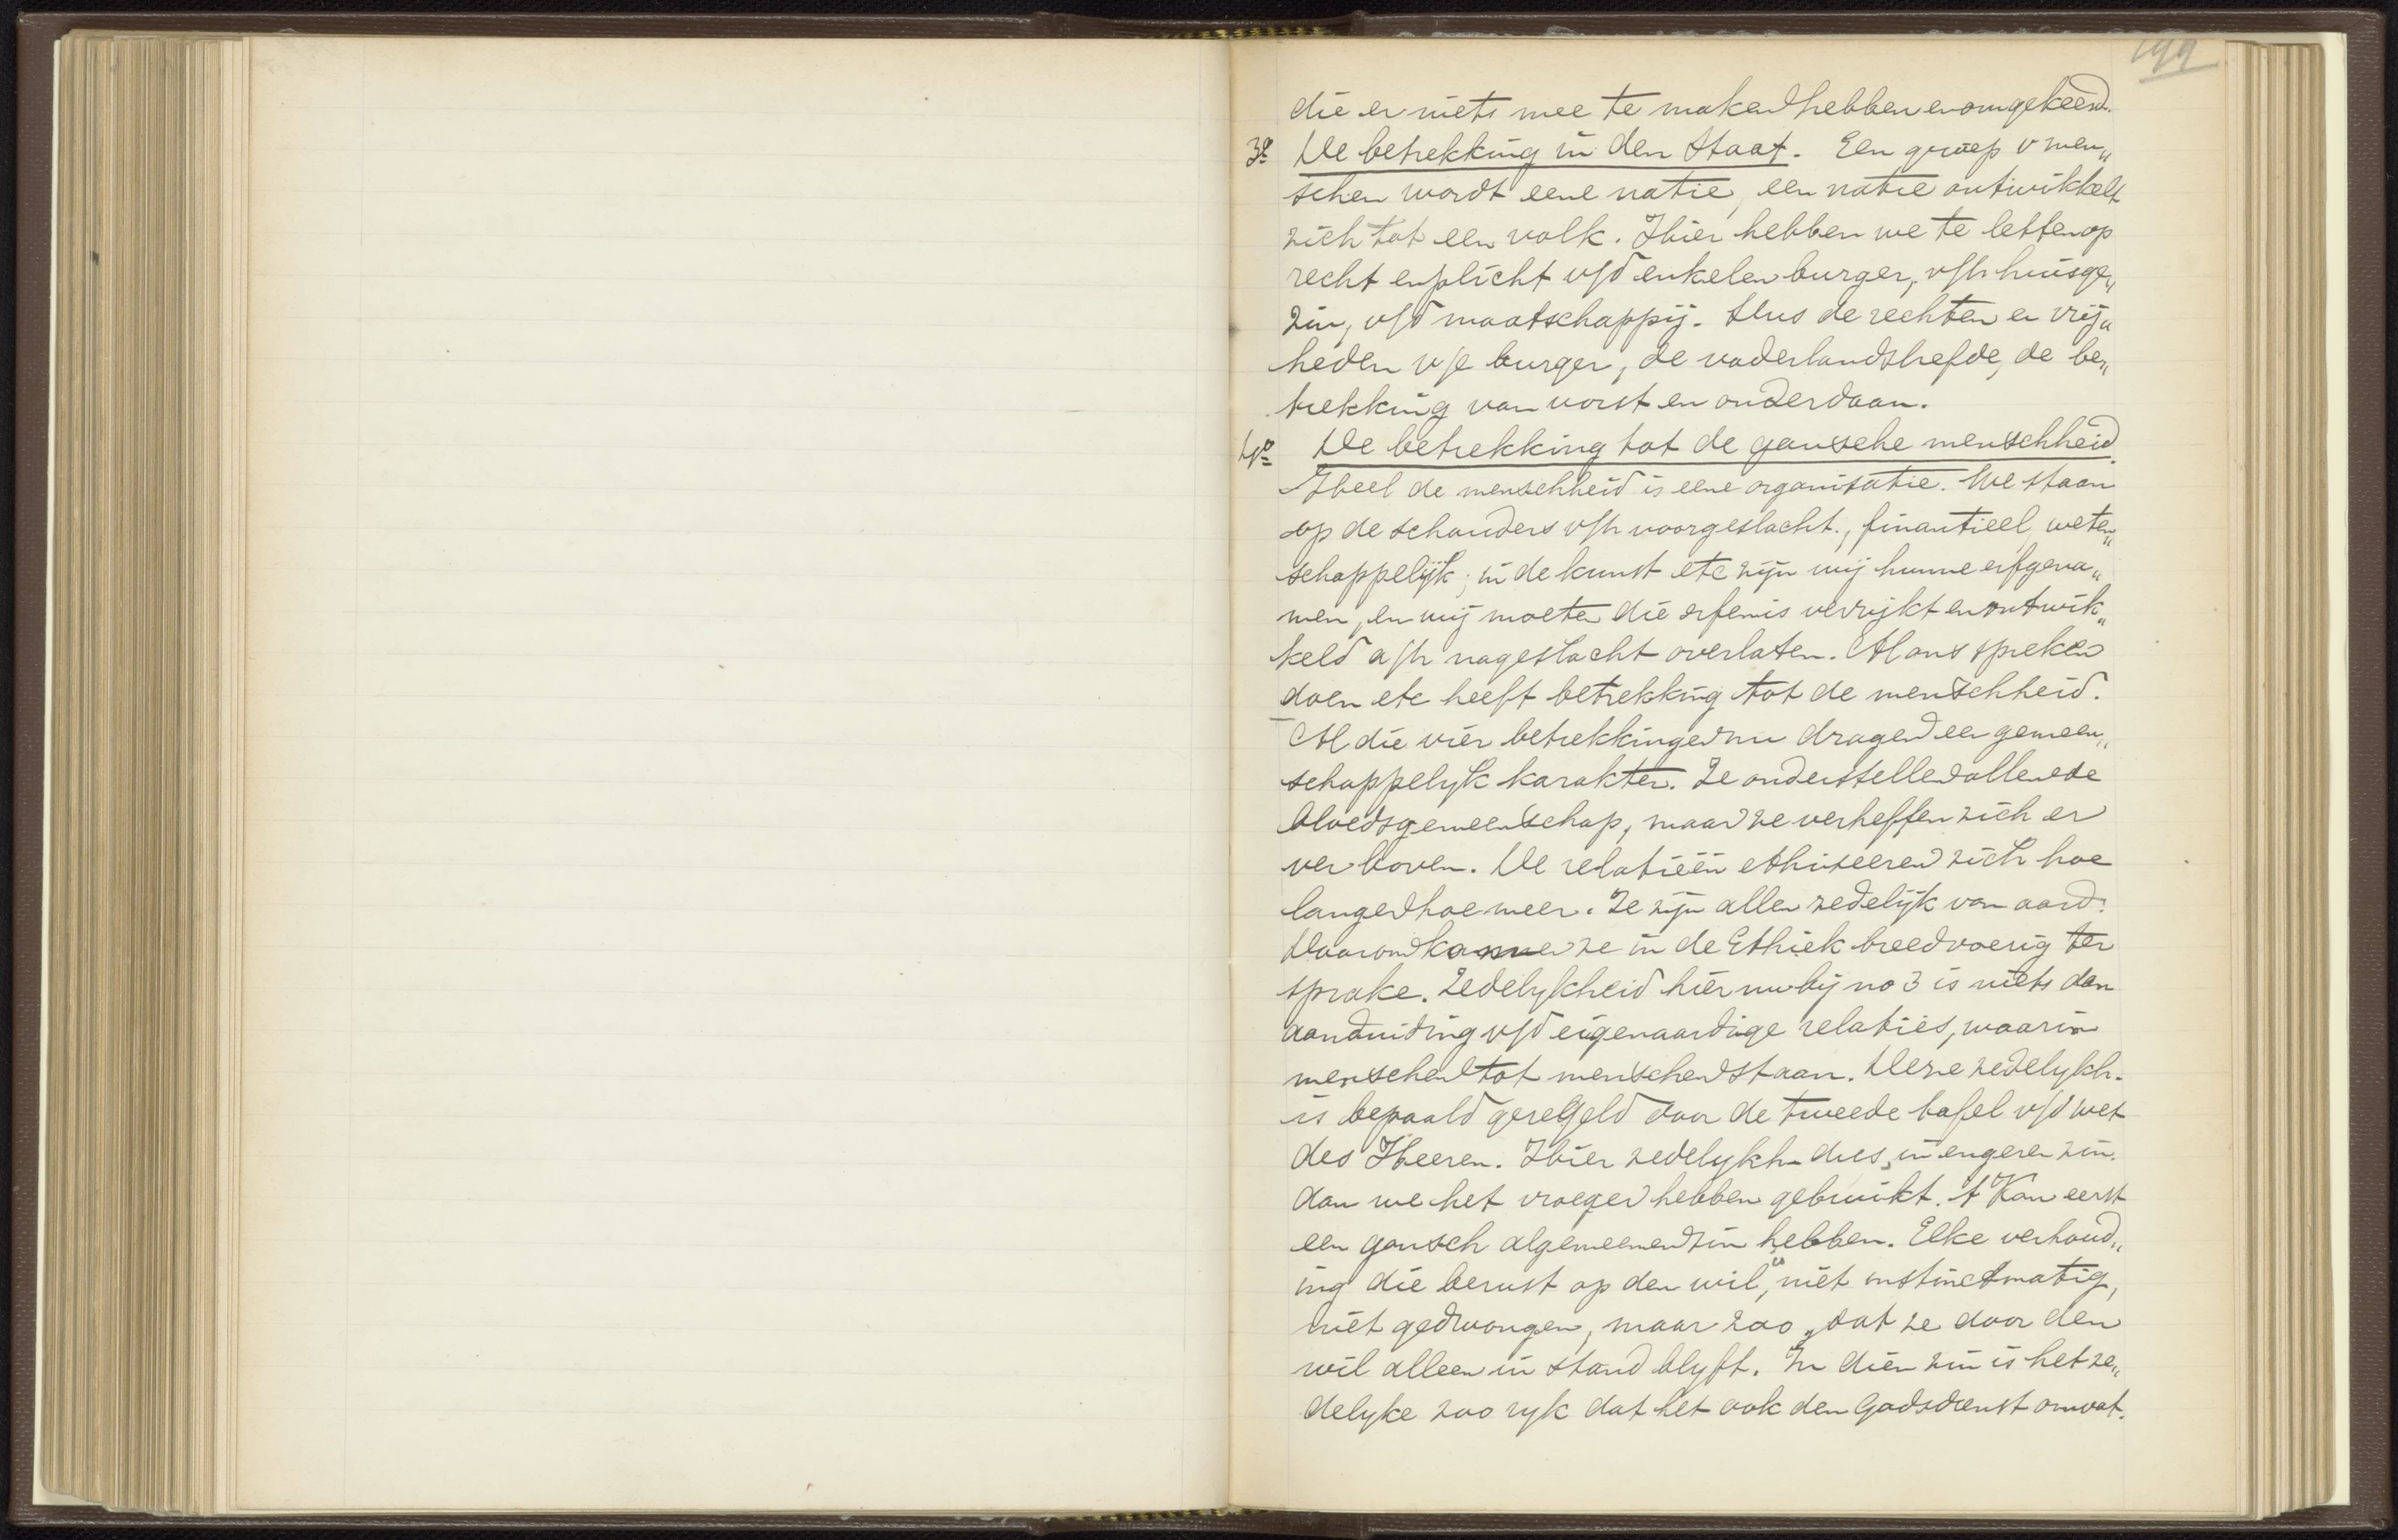 199
die er niets mee te maken hebben en omgekeerd.
3º De betrekking in den Staat. Een groep v men„
schen wordt eene natie, een natie ontwikkelt
zich tot een volk. Hier hebben we te letten op
recht en plicht v/d enkelen burger, v/h huisge„
zin, v/d maatschappij. Dus de rechten en vrij„
heden v/e burger, de vaderlandsliefde, de be„
trekking van vorst en onderdaan.
4º De betrekking tot de gansche menschheid.
Heel de menschheid is eene organisatie. We staan
op de schouders v/h voorgeslacht., finantieel, weten„
schappelijk, in de kunst etc zijn wij hunne erfgena„
men, en wij moeten die erfenis verrijkt en ontwik„
keld a/h nageslacht overlaten. Al ons spreken
doen etc heeft betrekking tot de menschheid.
Al die vier betrekkingen nu dragen een gemeen„
schappelijk karakter. Ze onderstellen allen de
bloedsgemeenschap, maar ze verheffen zich er
ver boven. De relatiëen ethiseeren zich hoe
langer hoe meer. Ze zijn allen zedelijk van aard.
Daarom komen ze in de Ethiek breedvoerig ter
sprake. Zedelijkheid hier nu bij no 3 is niets dan
aanduiding v/d eigenaardige relaties, waarin
menschen tot menschen staan. Deze zedelijkh.
is bepaald geregeld door de tweede tafel v/d wet
des Heeren. Hier zedelijkh. dus in engeren zin.
dan we het vroeger hebben gebruikt. 't Kan eerst
een gansch algemeenen zin hebben. Elke verhoud„
ing die berust op den wil, niet instinctmatig,
niet gedwongen, maar zoo, dat ze door den
wil alleen in stand blijft. In dien zin is het ze„
delijke zoo rijk dat het ook den Godsdienst omvat.